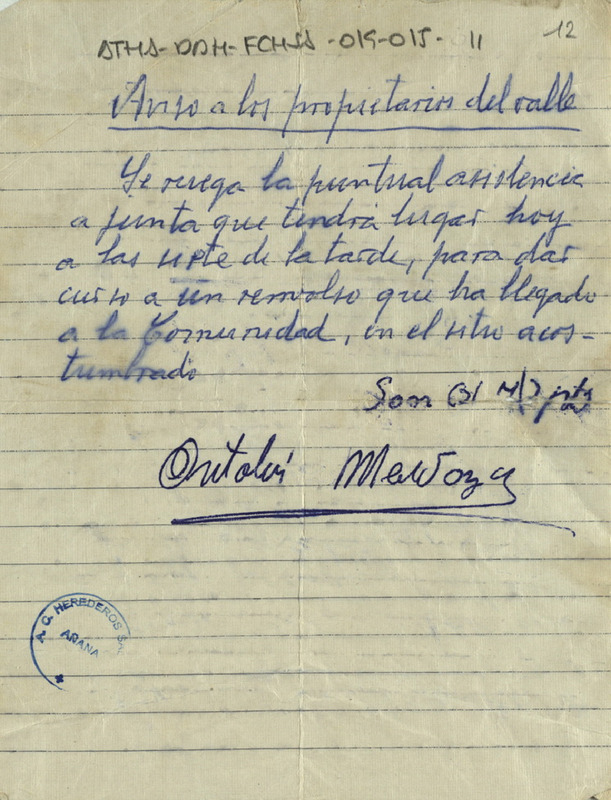 ATHA-DAH-FCHSS-019-015- 11
12
Aviso a los propietarios del valle
Se ruega la puntual asistencia
a junta que tendrá lugar hoy
a las siete de la tarde, para dar
curso a un remvolso que ha llegado
a la Comunidad, en el sitio acos-
tumbrado
Son
Antolin Mendoza
A. C. HEREDEROS
ARANA